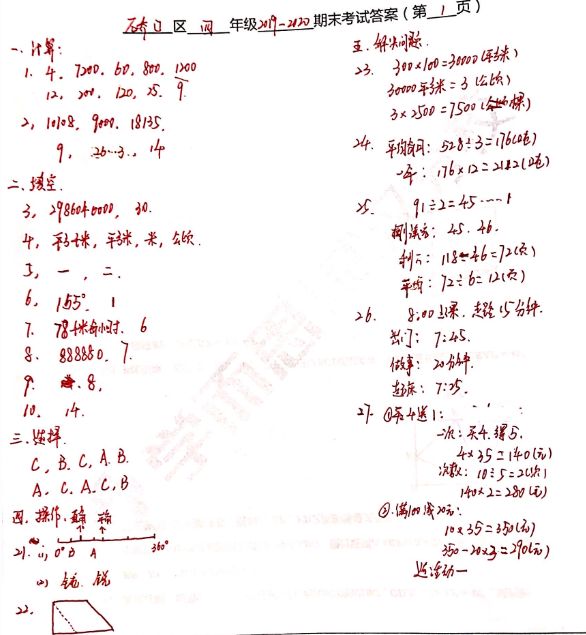 硚口区 四 年级2019-2020期末考试答案(第 1 页)
一、计算:
1. 4, 7200, 60, 800, 1200
12, 200, 120, 25, 9
2, 10108, 9000, 18135
9, 26…3, 14
二、填空.
3, 298604000, 30.
4, 平方千米, 平方米, 米, 公顷.
5, 一, 二.
6, 155° 1
7. 78千米每小时. 6
8. 888880, 7.
9. 8,
10. 14.
三. 选择.
C, B. C, A. B.
A. C, A. C, B
四. 操作.
21. (1) 0° B A 360°
(2) 钝. 锐
22.
五. 解决问题.
23. 300×100=30000(平方米)
30000平方米=3(公顷)
3×2500=7500(棵)
24. 平均每月: 528÷3=176(电)
一年: 176×12=2112(电)
25. 91÷2=45……1
45. 46.
118-46=72(页)
平均: 72÷6=12(页)
26. 8:00上课. 走路15分钟.
出门: 7:45.
做事: 20分钟.
起床: 7:25.
27. ①每4送1:
一次: 买4得5.
4×35=140(元)
次数: 10÷5=2(次)
140×2=280(元)
②. 满100减20元:
10×35=350(元)
350-20×3=290(元)
选活动一